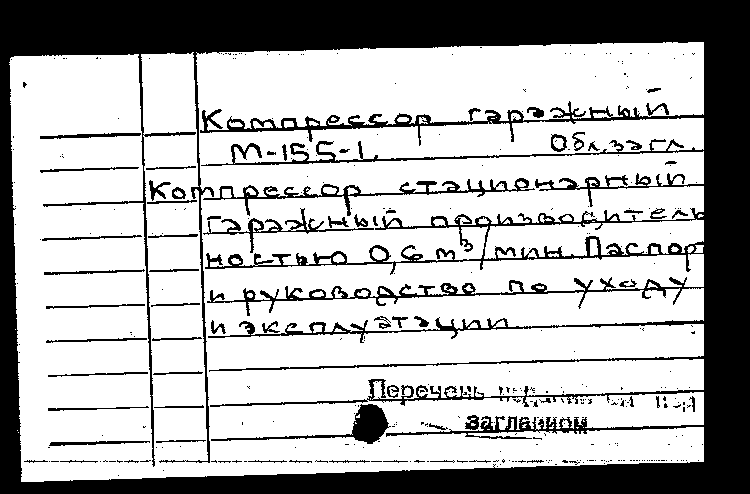 Компрессор гаражный
М-155-1. Обл.загл.
Компрессор стационарный
гаражный производитель
ностью 0,6 м³/мин. Паспорт
и руководство по уходу
и эксплуатации
Перечень под
заглавием